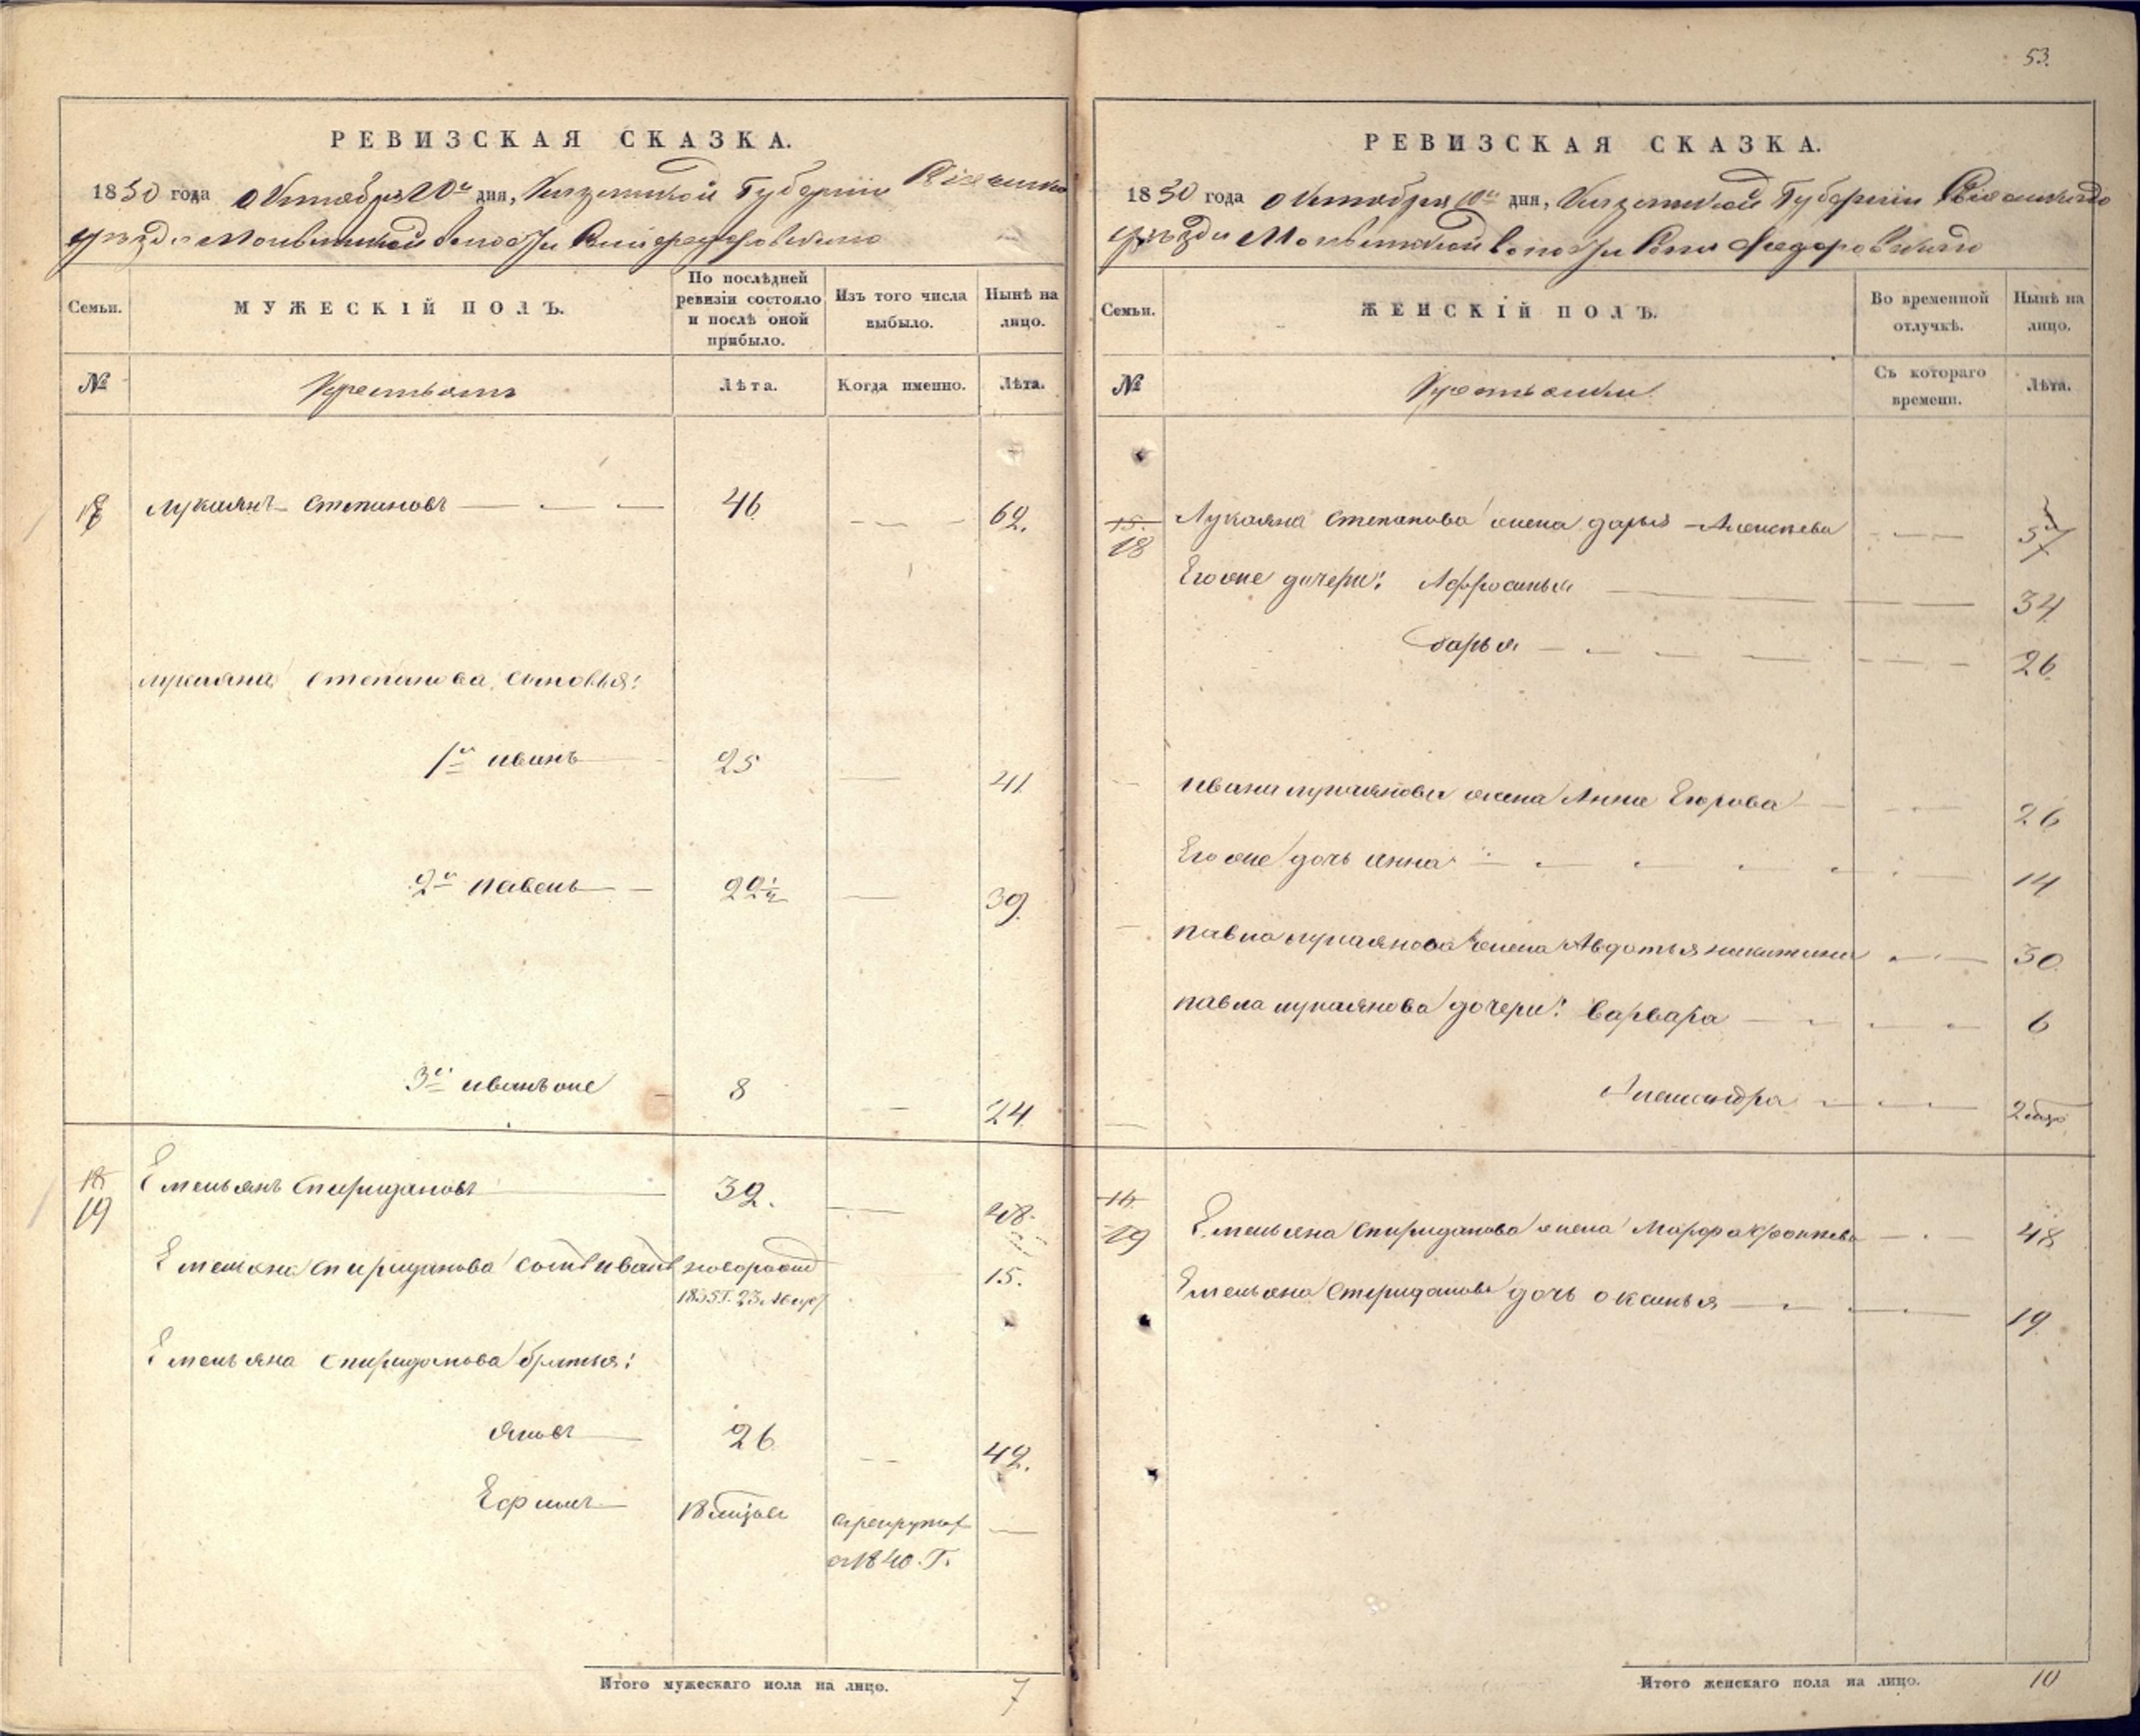 53.
РЕВИЗСКАЯ СКАЗКА.
1850 года Октября 10го дня, Губерніи
уѣзда волости
Семьи. МУЖЕСКІЙ ПОЛЪ. По послѣдней ревизіи состояло и послѣ оной прибыло. Изъ того числа выбыло. Нынѣ на лицо.
№ Крестьянъ Лѣта. Когда именно. Лѣта.
18 Лукаянъ Степановъ 46 62.
Лукаяна Степанова сыновья:
1й иванъ 25 41
2й павелъ 22½ 39.
3й иванъ оне 8 24
19 Емельянъ Спиридановъ 32. 48.
Емельяна Спириданова сынъ иванъ новорожд 15.
1835 Г. 23 Авгус
Емельяна Спириданова братья:
Яковъ 26 42.
Ефимъ 18 мѣцовъ
въ 1840. Г.
Итого мужескаго пола на лицо. 7
РЕВИЗСКАЯ СКАЗКА.
1850 года Октября 10го дня, Губерніи
уѣзда волости Села Федоровскаго
Семьи. ЖЕНСКІЙ ПОЛЪ. Во временной отлучкѣ. Нынѣ на лицо.
№ Крестьянки Съ котораго времени. Лѣта.
15.
18 Лукаяна Степанова жена дарья Алексѣева
Егоже дочери: Афросинья 34
дарья 26
Ивана лукаянова жена Анна Егорова 26
Егоже дочь анна 14
павла лукаянова жена Авдотья никитина 30
павла лукаянова дочери: варвара 6
Александра 2
19 Емельяна Спириданова жена Марфа 48
Емельяна Спириданова дочь оксинья 19
Итого женскаго пола на лицо. 10